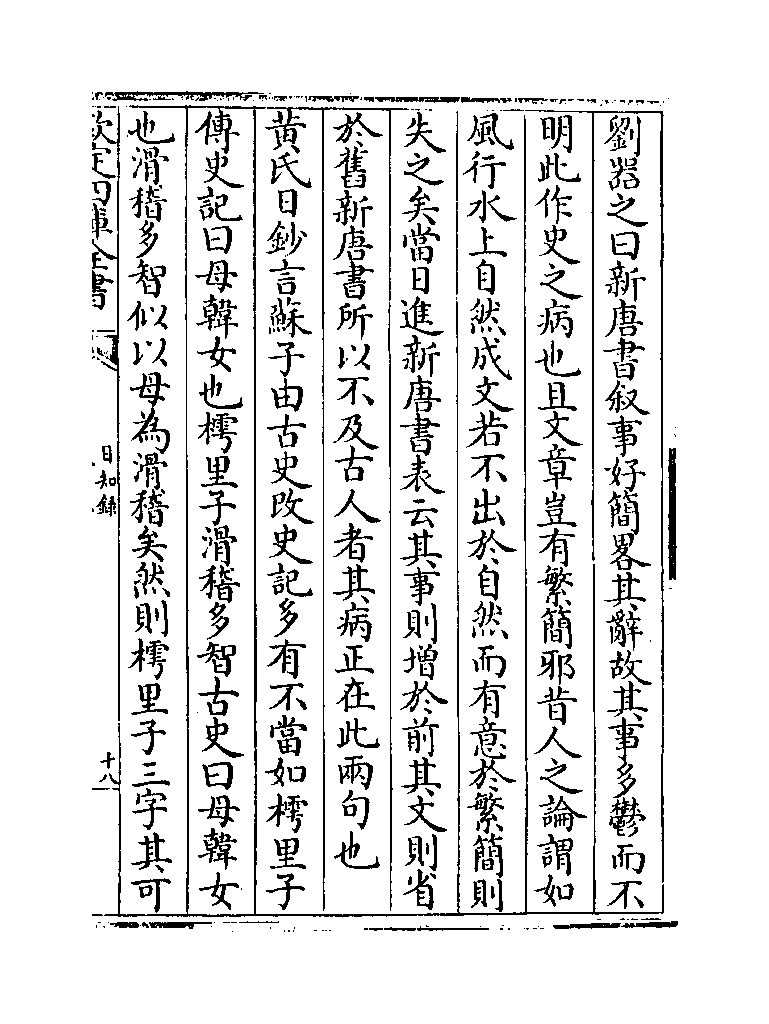 劉器之曰新唐書叙事好簡畧其辭故其事多鬱而不
明此作史之病也且文章豈有繁簡邪昔人之論謂如
風行水上自然成文若不出於自然而有意於繁簡則
失之矣當日進新唐書表云其事則增於前其文則省
於舊新唐書所以不及古人者其病正在此兩句也
黄氏日鈔言蘇子由古史改史記多有不當如樗里子
傳史記曰母韓女也樗里子滑稽多智古史曰母韓女
也滑稽多智似以母為滑稽矣然則樗里子三字其可
欽定四庫全書
日知錄
十八